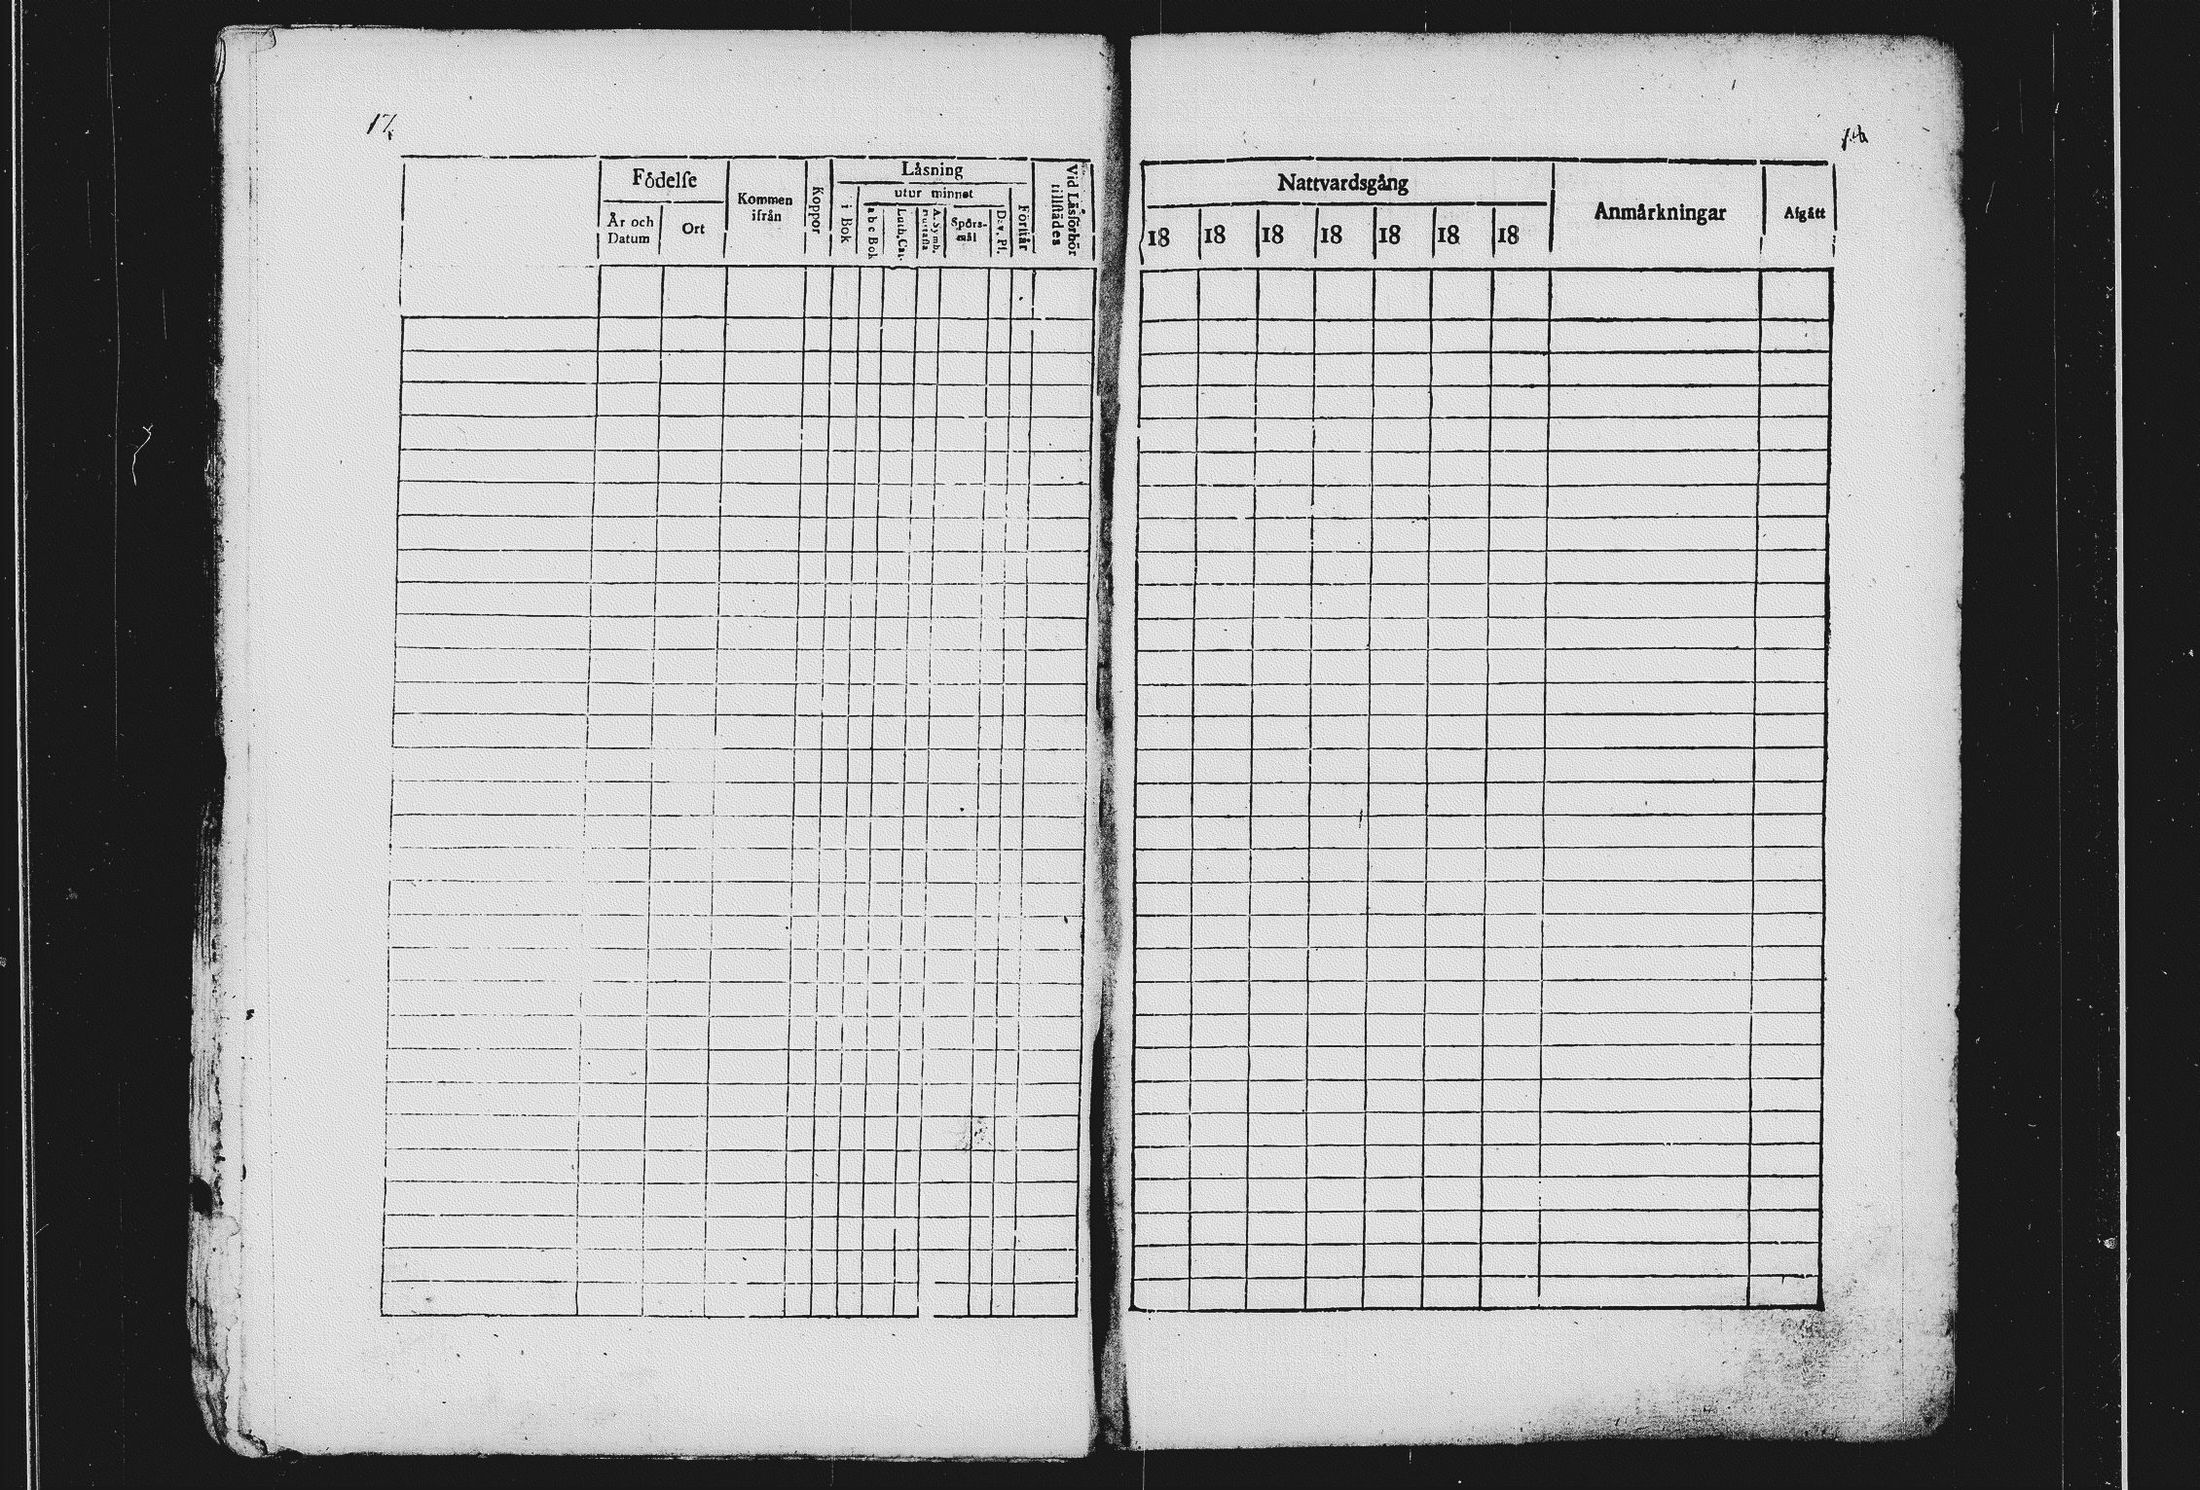 17.
Födelse
År och
Datum
Ort
Kommen
ifrån
Koppor
Läsning
i Bok
utur minnet
a b c Bok
Luth. Cat.
A. Symb.
Spörs-
mål
Dav. Ps.
Förstår
Vid Läsförhör
tillstädes
Nattvardsgång
18 18 18 18 18 18 18
Anmärkningar
Afgått